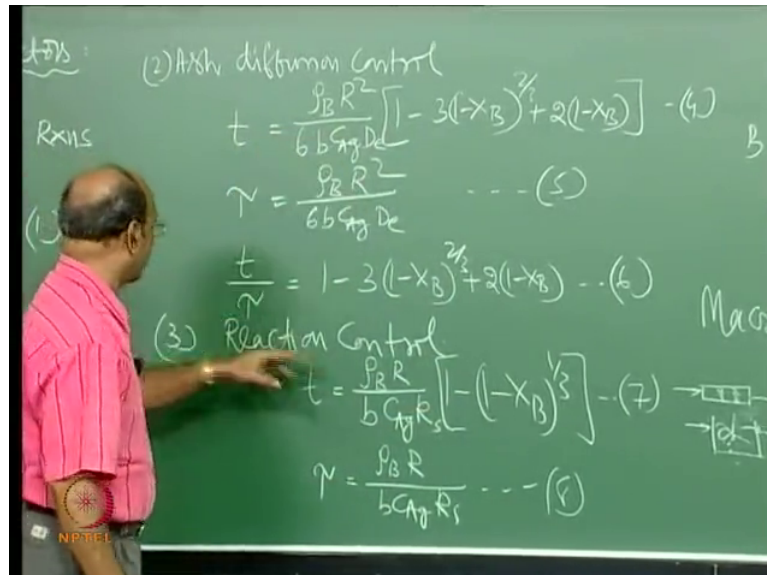 tors :
(2) Ash diffusion Control
Rxns
t = ρ_B R² / 6 b C_Ag D_e [1 - 3(1-X_B)^2/3 + 2(1-X_B)] - (4)
B
τ = ρ_B R² / 6 b C_Ag D_e ---- (5)
(1)
t/τ = 1 - 3(1-X_B)^2/3 + 2(1-X_B) -- (6)
(3) Reaction Control
Mac
t = ρ_B R / b C_Ag k_s [1 - (1-X_B)^1/3] -- (7)
τ = ρ_B R / b C_Ag k_s ---- (8)
NPTEL